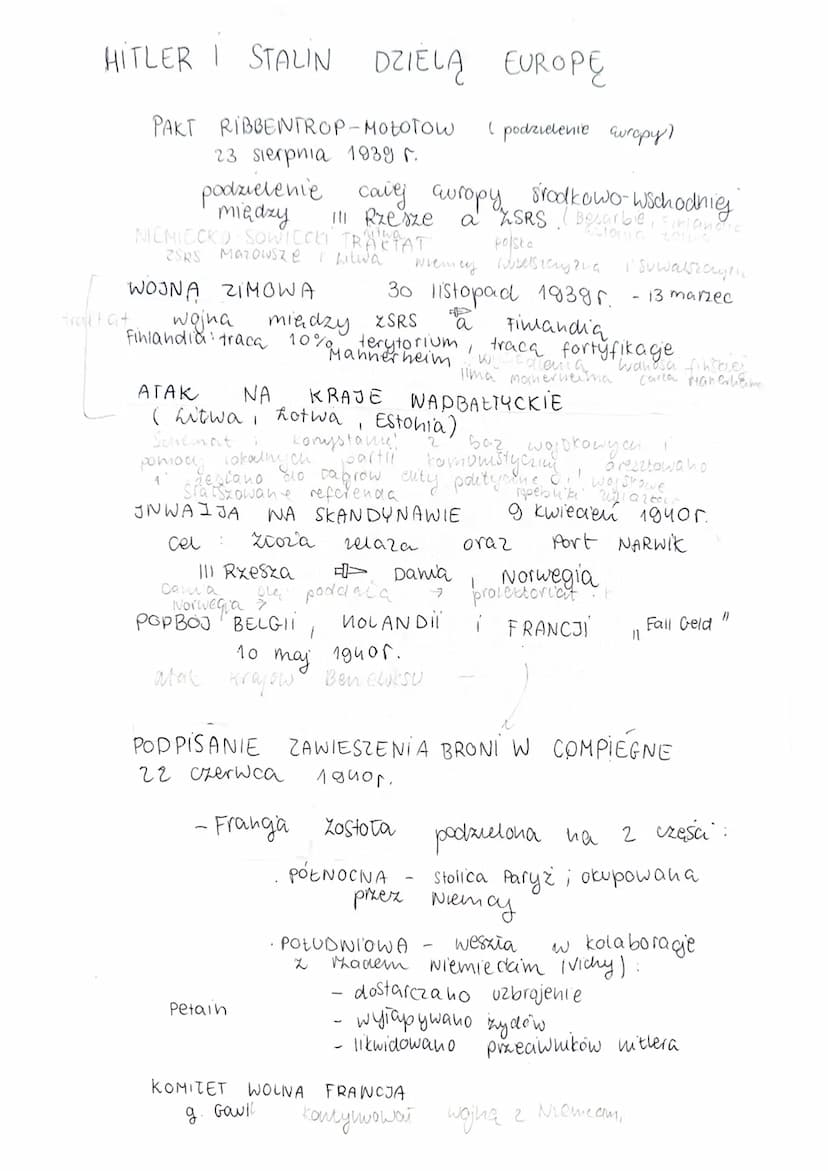 HITLER I STALIN DZIELĄ EUROPĘ
PAKT RIBBENTROP-MOŁOTOW (podzielenie europy)
23 sierpnia 1939 r.
podzielenie całej europy środkowo-wschodniej
między III Rzesze a ZSRS (Besarbie, Finlandie
NIEMIECKO SOWIECKI TRAKTAT Litwa Polska
ZSRS Mazowsze i Litwa Niemcy lubelszczyzna i suwalszczyzna
WOJNA ZIMOWA 30 listopad 1939 r. - 13 marzec
traktat wojna między ZSRS a Finlandią
Finlandia: traca 10% terytorium, tracą fortyfikaje
Mannerheim
linia manerheima
ATAK NA KRAJE NADBAŁTYCKIE
(Litwa, Łotwa, Estonia)
Schemat: korzystanie z baz wojskowych i
pomocy lokalnych partii komunistycznej, aresztowano
i zesłano do łagrów elity polityczne i wojskowe
sfałszowane referenda
INWAZJA NA SKANDYNAWIE 9 kwiecień 1940 r.
cel : złoża żelaza oraz Port NARWIK
III Rzesza ⇨ Dania, Norwegia
Dania się poddaje → protektoriat
Norwegia →
PODBÓJ BELGII, HOLANDII i FRANCJI „Fall Geld"
10 maj 1940r.
atak krajów Beneluksu -
PODPISANIE ZAWIESZENIA BRONI W COMPIÈGNE
22 czerwca 1940r.
- Francja została podzielona na 2 części:
· PÓŁNOCNA - stolica Paryż ; okupowana
przez Niemcy
· POŁUDNIOWA - weszła w kolaboracje
z rządem niemieckim (Vichy):
- dostarczano uzbrojenie
Petain
- wyłapywano żydów
- likwidowano przeciwników hitlera
KOMITET WOLNA FRANCJA
g. Gaull kontynuował wojnę z Niemcami